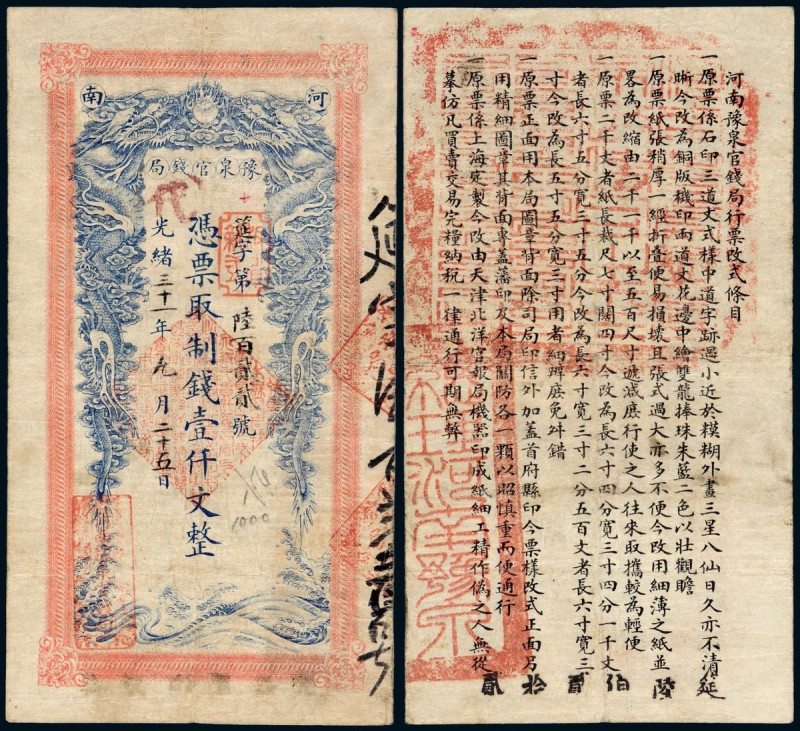 河南
豫泉官錢局
筵字第陸百貳貳號
憑票取制錢壹仟文整
光緒三十一年九月二十五日
1000
河南豫泉官錢局行票改式條目
一原票係石印三道文式樣中道字跡過小近於糢糊外畫三星八仙日久亦不清
晰今改為銅版機印兩道文花邊中繪雙龍捧珠朱藍二色以壯觀瞻
一原票紙張稍厚一經折疊便易損壞且張式過大亦多不便今改用細薄之紙並
畧為改縮由二千一千以至五百尺寸遞減庶行使之人往來取攜較為輕便
一原票二千文者紙長裁尺七寸闊四寸今改為長六寸四分寬三寸四分一千文
者長六寸五分寬三寸五分今改為長六寸寬三寸二分五百文者長六寸寬三
寸今改為長五寸五分寬三寸用者細辨庶免舛錯
一原票正面用本局圖章背面除司局印信外加蓋首府縣印今票樣改式正面另
用精細圖章其背面專蓋藩印及本局關防各一顆以昭慎重而便通行
一原票係上海寄製今改由天津北洋官報局機器印成紙細工精作偽之人無從
摹仿凡買賣交易完糧納稅一律通行可期無弊
筵陸伯貳拾貳